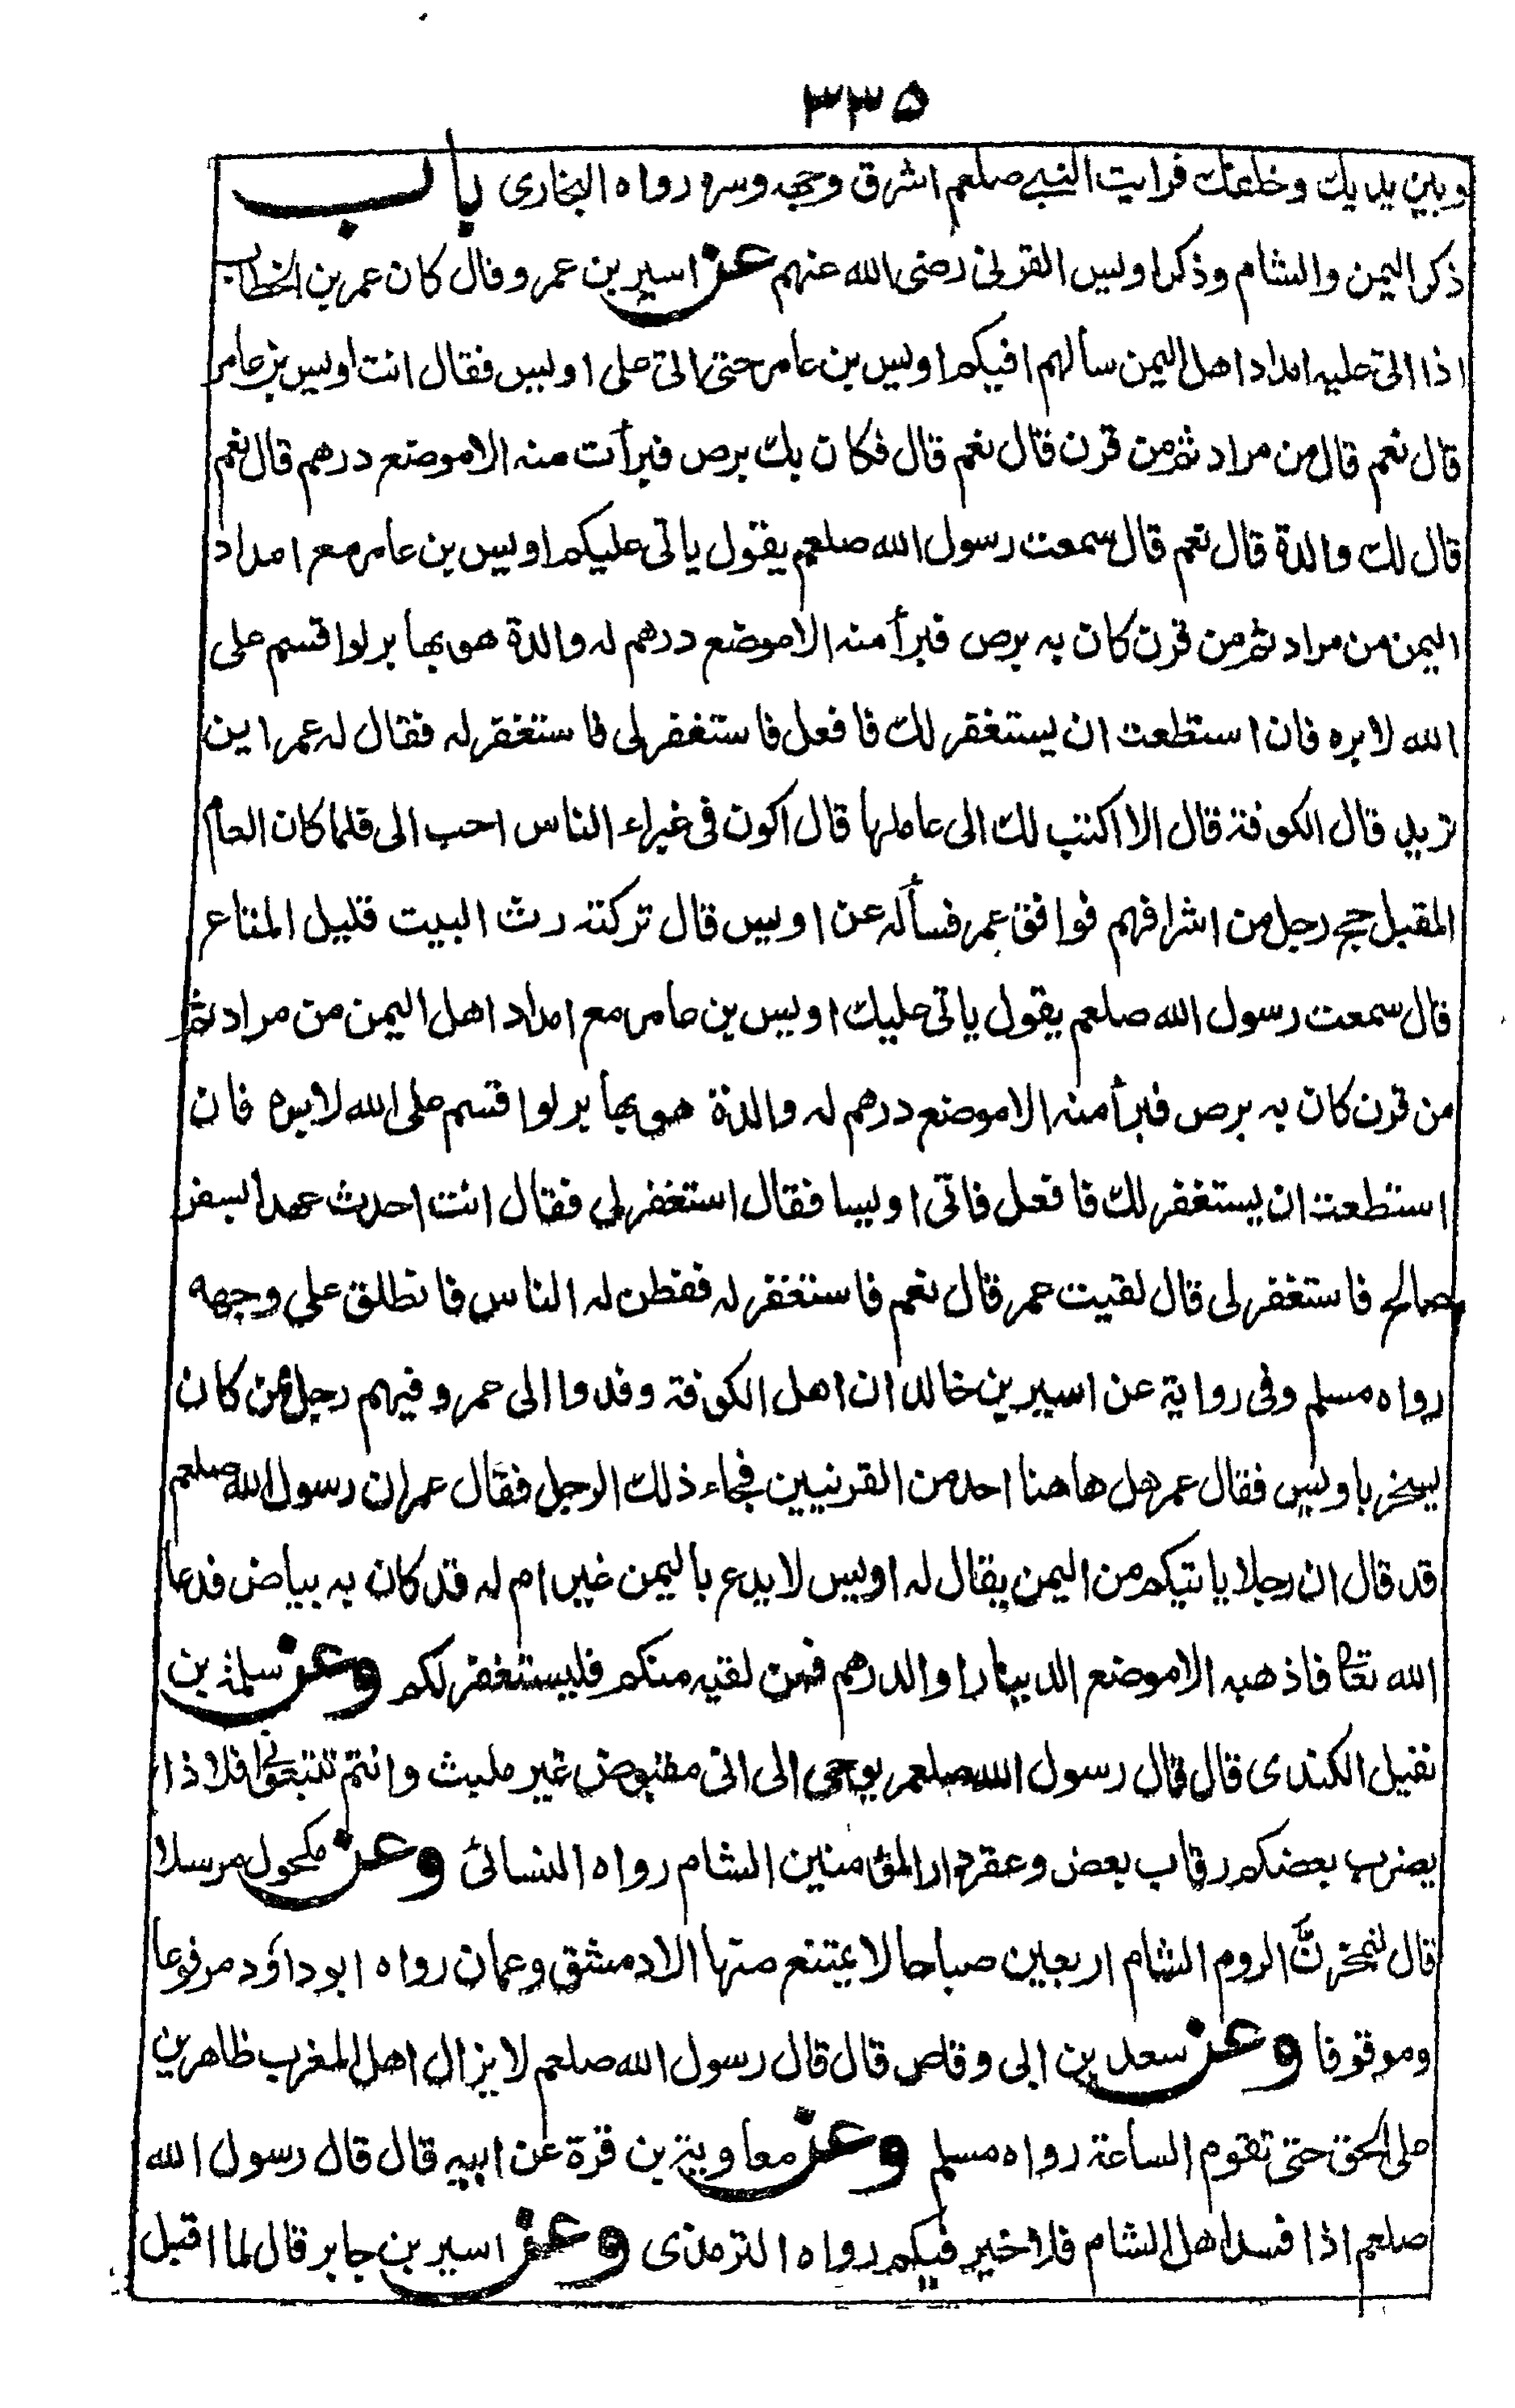 ٣٣٥
وبين يديك وخلفك فرايت النبي صلعم اشرق وجهه وسره رواه البخاري باب
ذكر اليمن والشام وذكر اويس القرني رضي الله عنهم عن اسير بن عمرو قال كان عمر بن الخطاب
اذا اتى عليه امداد اهل اليمن سألهم افيكم اويس بن عامر حتى اتى على اويس فقال انت اويس بن عامر
قال نعم قال من مراد ثم من قرن قال نعم قال فكان بك برص فبرأت منه الا موضع درهم قال نعم
قال لك والدة قال نعم قال سمعت رسول الله صلعم يقول ياتي عليكم اويس بن عامر مع امداد
اليمن من مراد ثم من قرن كان به برص فبرأ منه الا موضع درهم له والدة هو بها بر لو اقسم على
الله لابره فان استطعت ان يستغفر لك فافعل فاستغفر لي فاستغفر له فقال له عمر اين
تريد قال الكوفة قال الا اكتب لك الى عاملها قال اكون في غبراء الناس احب الى قلما كان العام
المقبل حج رجل من اشرافهم فوافق عمر فسأله عن اويس قال تركته رث البيت قليل المتاع
قال سمعت رسول الله صلعم يقول ياتي عليك اويس بن عامر مع امداد اهل اليمن من مراد ثم
من قرن كان به برص فبرأ منه الا موضع درهم له والدة هو بها بر لو اقسم على الله لابره فان
استطعت ان يستغفر لك فافعل فاتى اويسا فقال استغفر لي فقال انت احدث عهدا بسفر
صالح فاستغفر لي قال لقيت عمر قال نعم فاستغفر له ففطن له الناس فانطلق على وجهه
رواه مسلم وفي رواية عن اسير بن خالد ان اهل الكوفة وفدوا الى عمر وفيهم رجل ممن كان
يسخر باويس فقال عمر هل هاهنا احد من القرنيين فجاء ذلك الرجل فقال عمر ان رسول الله صلعم
قد قال ان رجلا ياتيكم من اليمن يقال له اويس لا يدع باليمن غير ام له قد كان به بياض فدعا
الله تعا فاذهبه الا موضع الدينار او الدرهم فمن لقيه منكم فليستغفر لكم وعن سلمة بن
نفيل الكندي قال قال رسول الله صلعم يوحى الى انى مقبوض غير ملبث وانتم تتبعوني افلاذا
يضرب بعضكم رقاب بعض وعقر دار المؤمنين الشام رواه النسائي وعن مكحول مرسلا
قال لتمخرن الروم الشام اربعين صباحا لا يمتنع منها الا دمشق وعمان رواه ابو داؤد مرفوعا
وموقوفا وعن سعد بن ابى وقاص قال قال رسول الله صلعم لا يزال اهل المغرب ظاهرين
على الحق حتى تقوم الساعة رواه مسلم وعن معاوية بن قرة عن ابيه قال قال رسول الله
صلعم اذا فسد اهل الشام فلا خير فيكم رواه الترمذي وعن اسير بن جابر قال لما اقبل